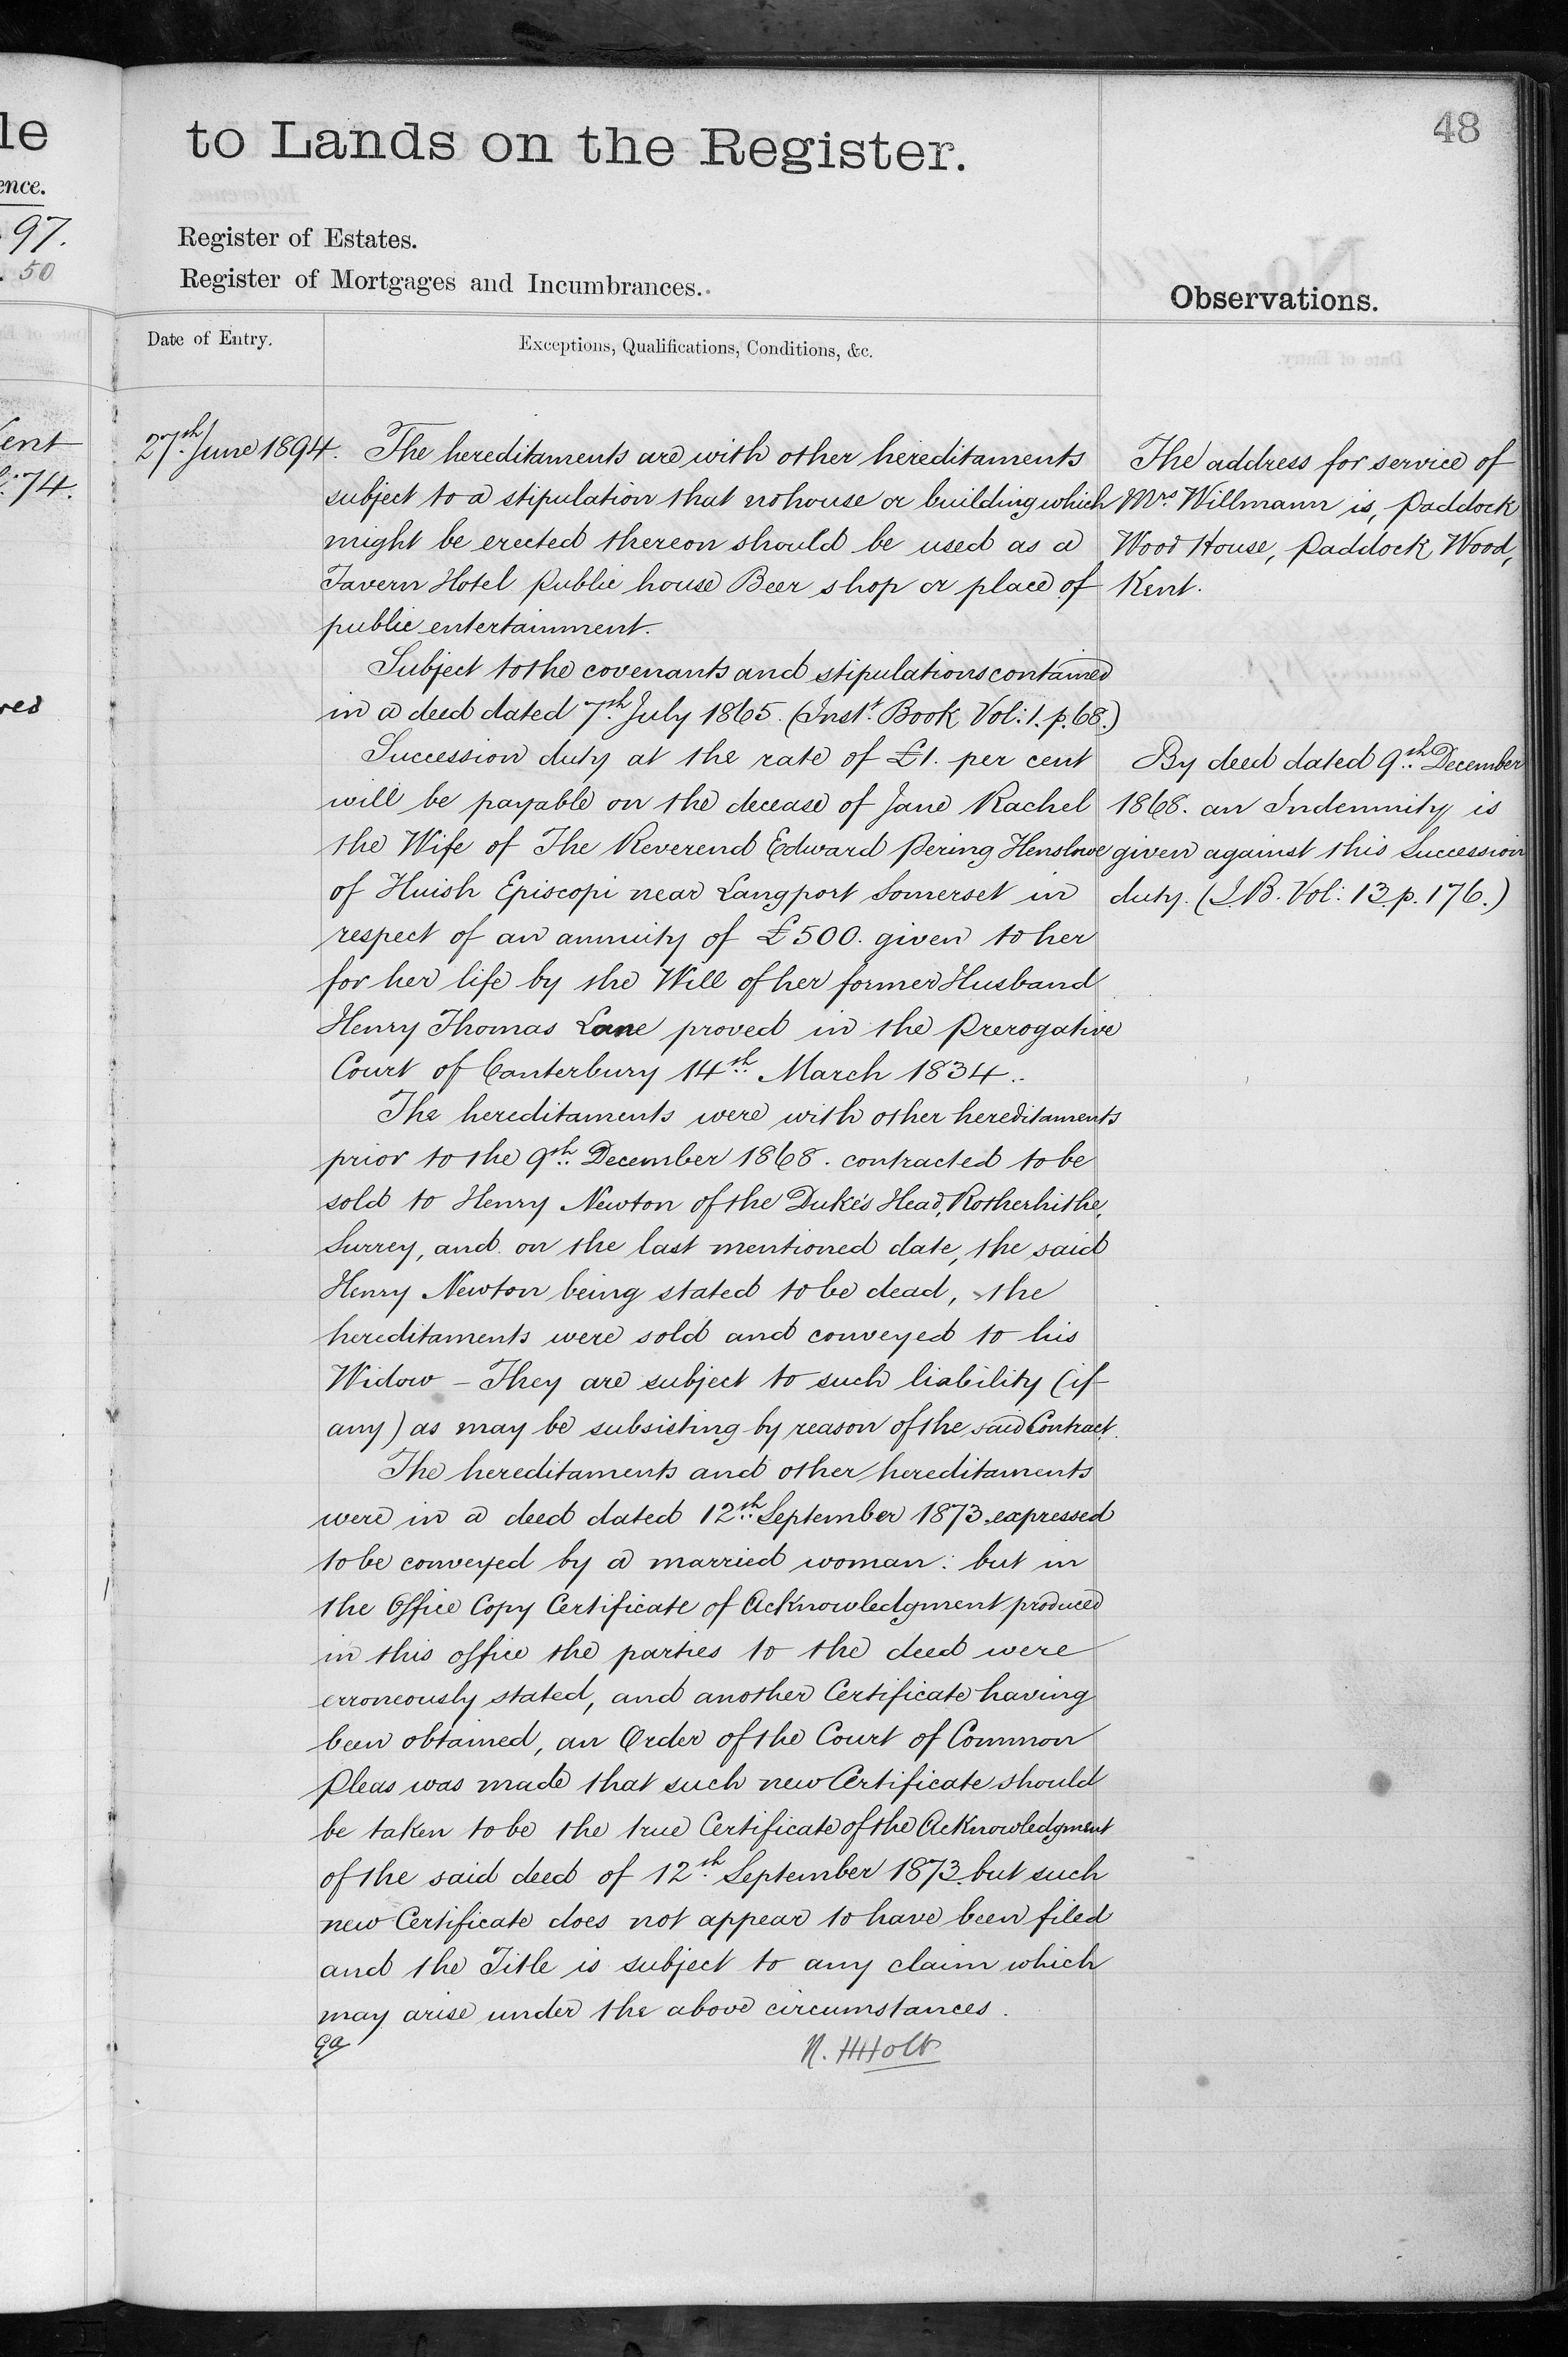 le
to Lands on the Register.
48
ence.
97.
50
Register of Estates.
Register of Mortgages and Incumbrances.
Observations.
Date of Entry.
Exceptions, Qualifications, Conditions, &c.
Kent
74.
27th June 1894.
The hereditaments are with other hereditaments
subject to a stipulation that no house or building which
might be erected thereon should be used as a
Tavern Hotel Public house Beer shop or place of
public entertainment.
Subject to the covenants and stipulations contained
in a deed dated 7th July 1865. (Inst. Book Vol: 1. p. 68.)
Succession duty at the rate of £1. per cent
will be payable on the decease of Jane Rachel
the Wife of The Reverend Edward Pering Henslowe
of Huish Episcopi near Langport Somerset in
respect of an annuity of £500. given to her
for her life by the Will of her former Husband
Henry Thomas Lane proved in the Prerogative
Court of Canterbury 14th March 1834.
The hereditaments were with other hereditaments
prior to the 9th December 1868. contracted to be
sold to Henry Newton of the Duke's Head, Rotherhithe,
Surrey, and on the last mentioned date, the said
Henry Newton being stated to be dead, the
hereditaments were sold and conveyed to his
Widow – They are subject to such liability (if
any) as may be subsisting by reason of the said Contract.
The hereditaments and other hereditaments
were in a deed dated 12th September 1873. expressed
to be conveyed by a married woman: but in
the Office Copy Certificate of Acknowledgment produced
in this office the parties to the deed were
erroneously stated, and another Certificate having
been obtained, an Order of the Court of Common
Pleas was made that such new Certificate should
be taken to be the true Certificate of the Acknowledgment
of the said deed of 12th September 1873. but such
new Certificate does not appear to have been filed
and the Title is subject to any claim which
may arise under the above circumstances.
N. H Holt
The address for service of
Mrs. Willmann is, Paddock
Wood House, Paddock Wood,
Kent.
By deed dated 9th December
1868. an Indemnity is
given against this Succession
duty. (I.B. Vol: 13. p. 176.)